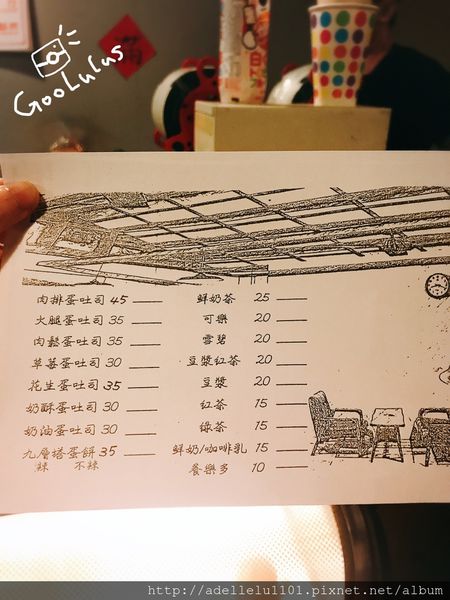 GooLuLus
滿
肉排蛋吐司 45
火腿蛋吐司 35
肉鬆蛋吐司 35
草莓蛋吐司 30
花生蛋吐司 35
奶酥蛋吐司 30
奶油蛋吐司 30
九層塔蛋餅 35
辣 不辣
鮮奶茶 25
可樂 20
雪碧 20
豆漿紅茶 20
豆漿 20
紅茶 15
綠茶 15
鮮奶/咖啡乳 15
養樂多 10
http://adellelu1101.pixnet.net/album